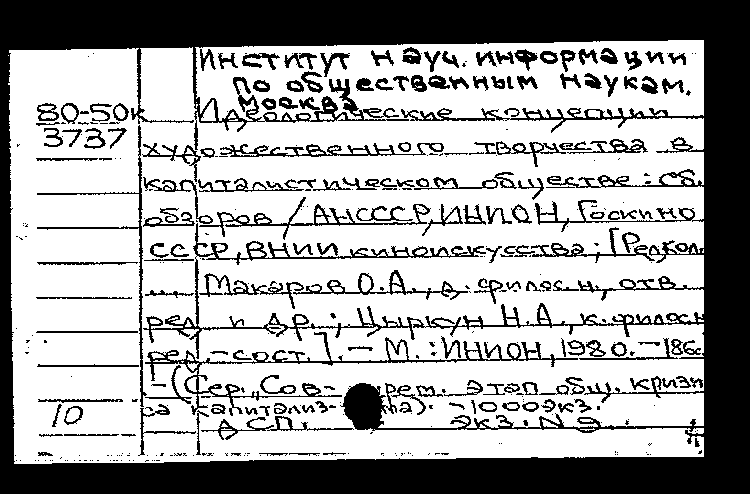 Институт науч. информации
по общественным наукам.
Москва
80-50к Идеологические концепции
3737
художественного творчества в
капиталистическом обществе: Сб.
обзоров / АН СССР, ИНИОН, Госкино
СССР, ВНИИ киноискусства; [Редкол.
... Макаров О.А., д. филос. н., отв.
ред. и др.; Цыркун Н.А., к. филос. н
ред.-сост.]. - М.: ИНИОН, 1980. - 186с.
- (Сер. „Сов- рем. этап общ. кризи
10 са капитализ- ма). - 1000экз.
ДСП. экз. N 9